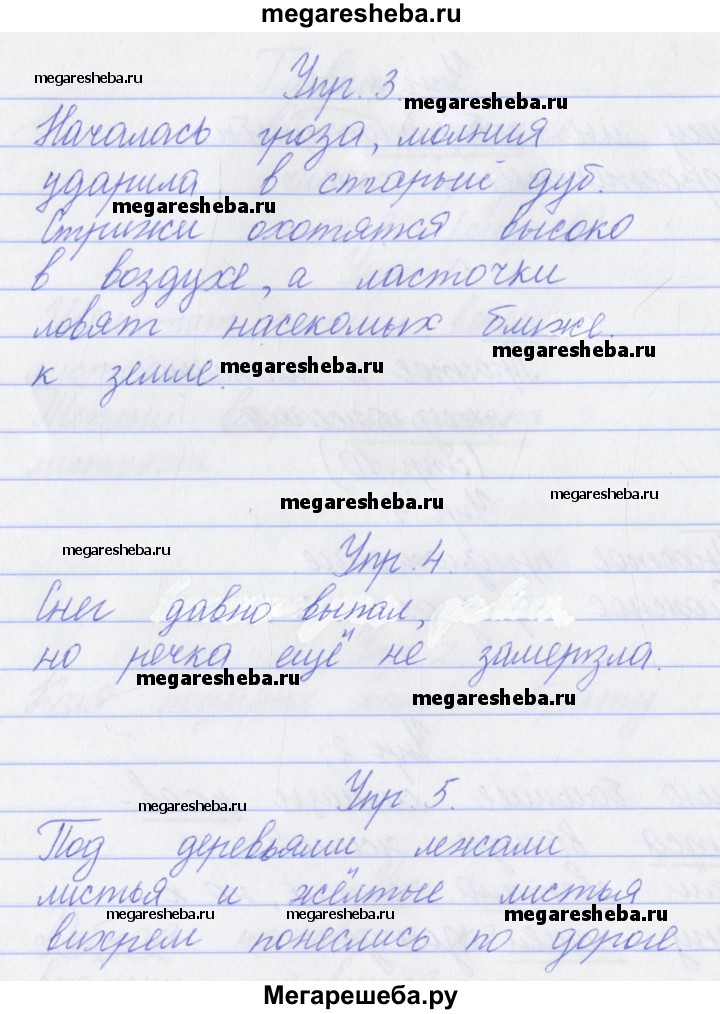 megaresheba.ru
megaresheba.ru
Упр. 3.
megaresheba.ru
Началась гроза, молния
ударила в старый дуб.
megaresheba.ru
Стрижи охотятся высоко
в воздухе, а ласточки
ловят насекомых ближе
megaresheba.ru
к земле.
megaresheba.ru
megaresheba.ru
megaresheba.ru
megaresheba.ru
Упр. 4.
Снег давно выпал,
но речка ещё не замерзла.
megaresheba.ru
megaresheba.ru
Упр. 5.
megaresheba.ru
Под деревьями лежали
листья и жёлтые листья
megaresheba.ru
megaresheba.ru
megaresheba.ru
вихрем понеслись по дороге.
Мегарешеба.ру